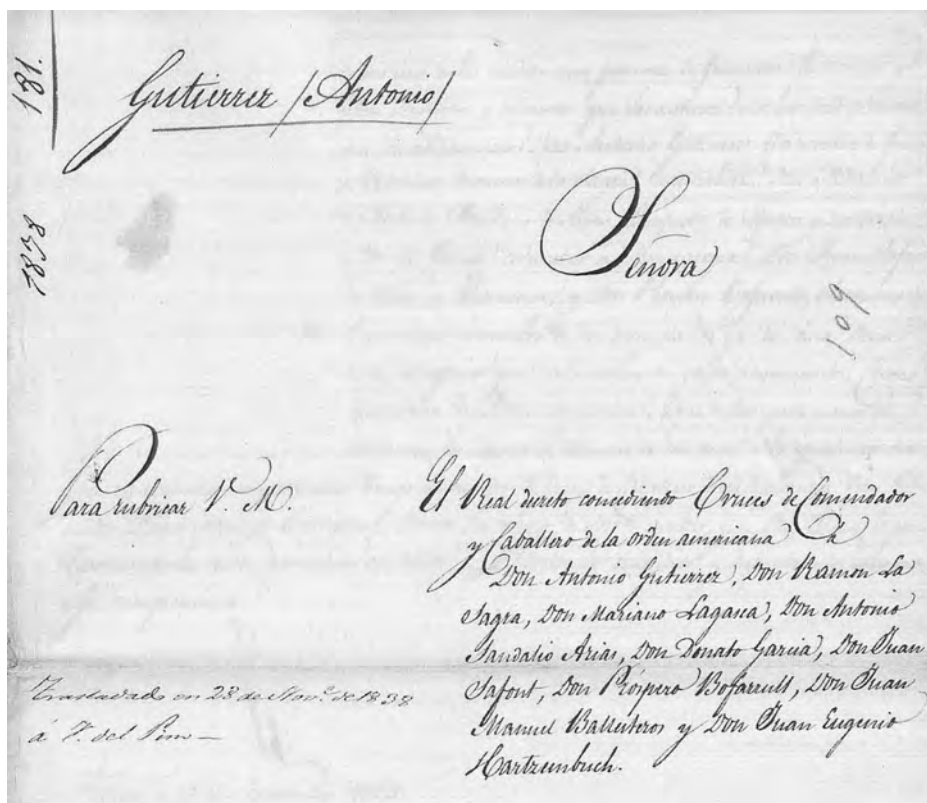 181.
Gutierrez (Antonio)
1838
Señora
109
Para rubricar V. M.
El Real decreto concediendo Cruces de Comendador
y Caballero de la orden americana á
Don Antonio Gutierrez, Don Ramon La
Sagra, Don Mariano Lagasca, Don Antonio
Sandalio Arias, Don Donato Garcia, Don Juan
Safont, Don Próspero Bofarrull, Don Juan
Manuel Ballesteros y Don Juan Eugenio
Hartzenbuch.
Trasladado en 28 de Nov.e de 1838
á V. del Pino